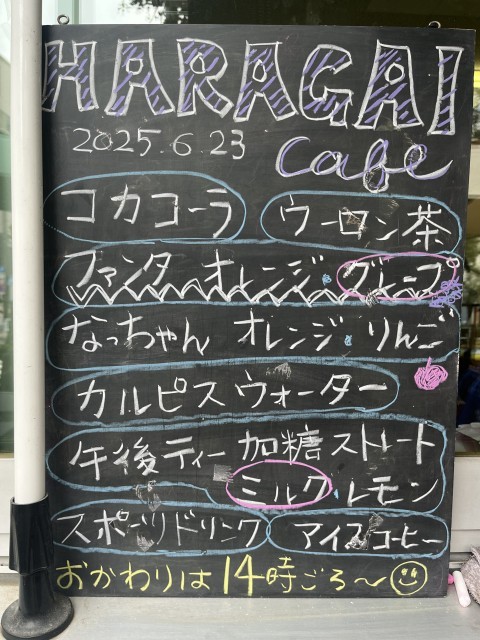 HARAGAI
2025.6.23 cafe
コカコーラ ウーロン茶
ファンタ オレンジ・グレープ
なっちゃん オレンジ・りんご
カルピスウォーター
午後ティー 加糖ストレート
ミルク・レモン
スポーツドリンク アイスコーヒー
おかわりは14時ごろ〜